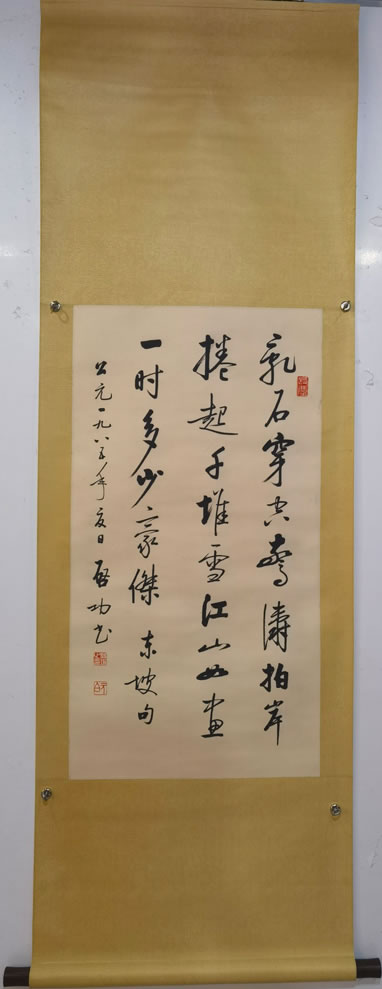 乱石穿空惊涛拍岸
捲起千堆雪江山如画
一时多少豪傑 东坡句
公元一九八五年夏日 启功书